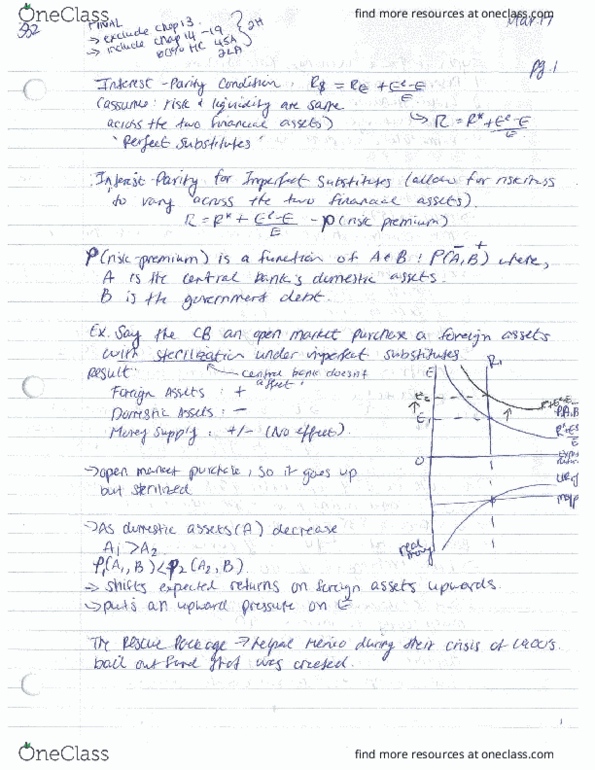 find more resources at oneclass.com
OneClass
382
FINAL
→ exclude chap 13.
→ include chap 14-19
2H
Mar. 17
pg. 1
Interest-Parity Condition. R$ = R€ + E^e-E/E
(assume: risk & liquidity are same
across the two financial assets)
↳ R = R* + E^e-E/E
"Perfect substitutes"
Interest-Parity for Imperfect Substitutes (allow for riskiness
to vary across the two financial assets).
R = R* + E^e-E/E - ρ (risk premium)
ρ (risk-premium) is a function of A & B : ρ(A, B) where,
- +
A is the central bank's domestic assets.
B is the government debt.
Ex. Say the CB an open market purchase a foreign assets
with sterilization under imperfect substitutes.
Result:
central bank doesn't
affect
Foreign Assets : +
Domestic Assets : -
Money Supply : +/- (No effect).
→ open market purchase, so it goes up
but sterilized
→ As domestic assets (A) decrease
A1 > A2
ρ1(A1, B) < ρ2(A2, B).
→ shifts expected returns on foreign assets upwards.
→ puts an upward pressure on E
E
R1
E2
E1
0
real
money
The Rescue Package → helped Mexico during their crisis of 1990's
bail out fund that was created.
1
OneClass
find more resources at oneclass.com